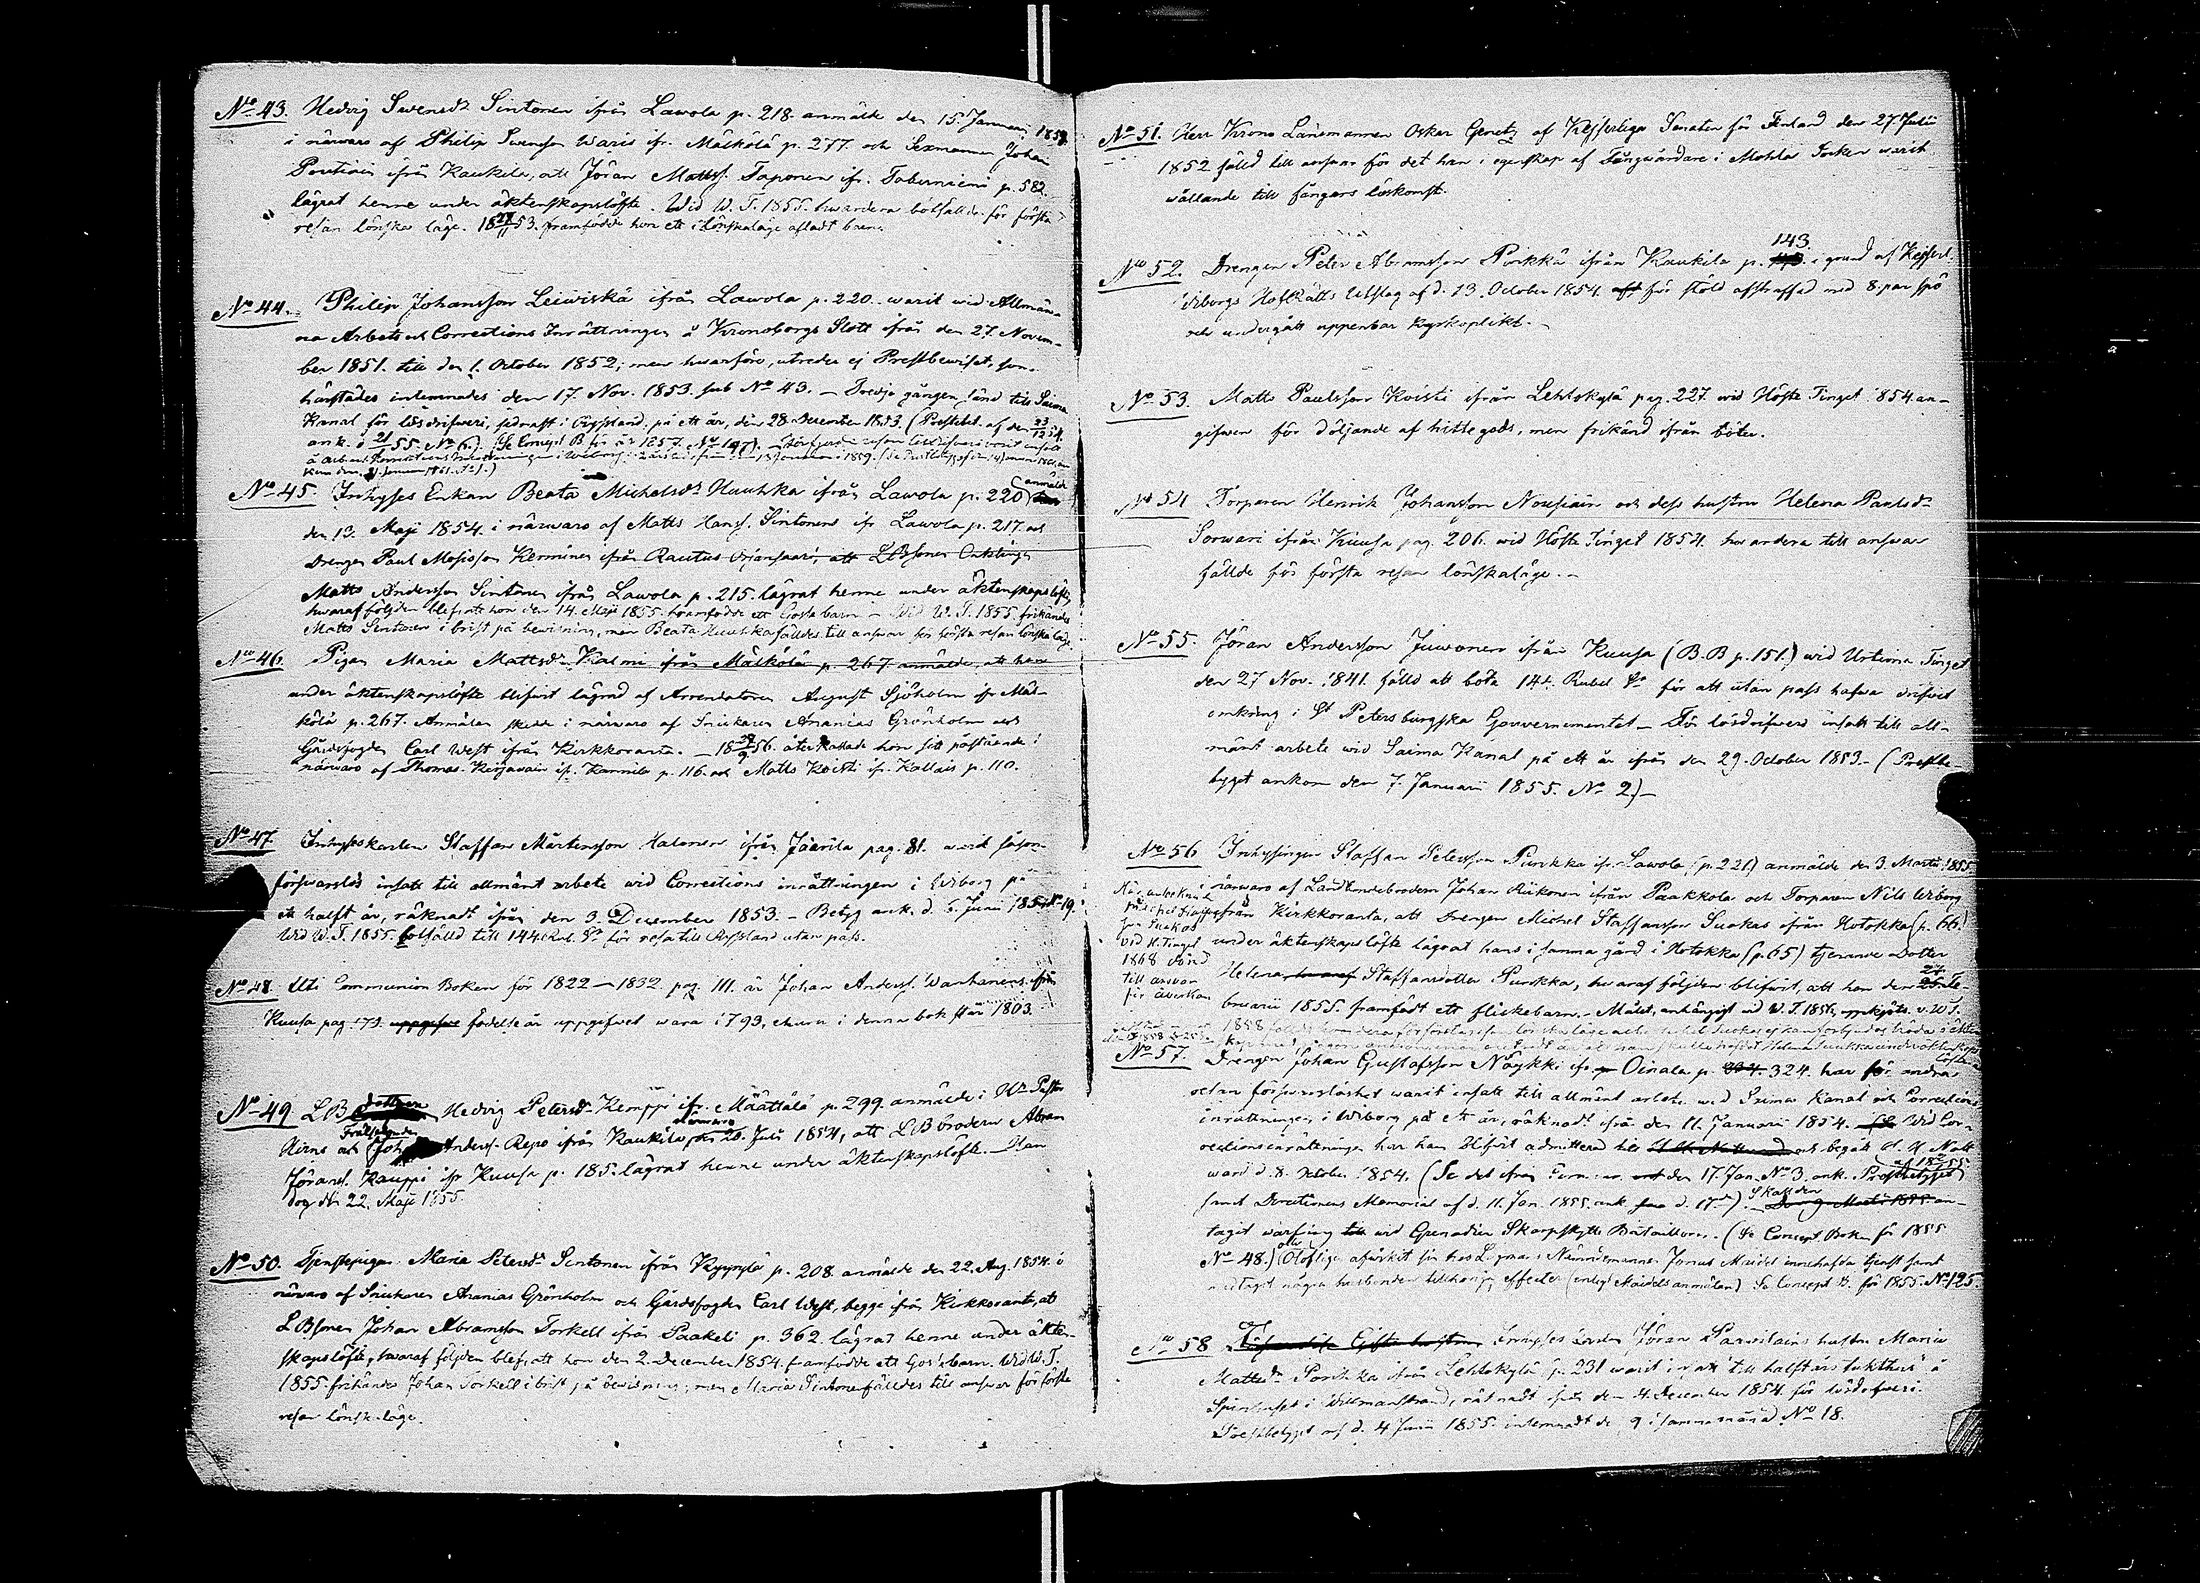 No 43. Hedvig Svensdr Sintonen ifrån Lawola p. 218. anmälte den 15 Januarii 1854
i närwaro af Philip Svensson Waris ifr. Mälkölä p. 277 och Sexmannen Johan
Poutiain ifrån Kaukila, att Jöran Mattss. Taponen ifr. p. 582.
lägrat henne under äktenskapslöfte. Wid W. T. 1855. hwardera bötfällde för första
resan lönska läge. 18 27/11 53. framfödde hon ett i lönskaläge afladt barn.
No 44. Philip Johansson Leiwiskä ifrån Lawola p. 220. warit wid Allmän-
na Arbets och Corrections Inrättningen å Kronoborgs Slott ifrån den 27. Novem-
ber 1851. till den 1. October 1852; men hwarföre, utredes ej Prestbewiset, som
härstädes inlemnades den 17. Nov. 1853. sub No 43. – Tredje gången sänd till Saima
Kanal för lösdrifveri, sednast i Ryssland, på ett år, den 28 December 1853. (Prestbet. af den 23/12 54.
ank. d 21/1 55. No 6.) (Se Concept B för år 1857. No 147).
No 45. Inhyses Enkan Beata Michelsdr Huuhka ifrån Lawola p. 220 anmälde
den 13. Maji 1854. i närwaro af Matts Hanss. Sintonens ifr Lawola p. 217. och
Drengen Paul Mosisson Kerminen ifrån Rautus Orjansaari, att LBssonen Enkling
Matts Andersson Sintonen ifrån Lawola p. 215. lägrat henne under äktenskapslöfte,
hwaraf följden blef, att hon den 14. Maji 1855. framfödde ett Gossebarn – Wid W. T. 1855. frikändes
Matts Sintonen i brist på bewisning, men Beata Huuhka fälldes till answar för första resan lönskaläge.
No 46. Pigan Maria Mattsdr Kalmi ifrån Mälkölä p. 267 anmälde, att hon
under äktenskapslöfte blifwit lägrad af Arrendatoren August Sjöholm ifr Mäl-
kölä p. 267. Anmälan skedde i närwaro af Snickaren Ananias Grönholm och
Gårdsfogden Carl West ifrån Kirkkoranta. – 18 29/9 56. återkallade hon sitt påstående i
närwaro af Thomas Kirjavain ifr. Karnila p. 116. och Matts Koisti ifr. Kallais p. 110.
No 47. Inhyseskarlen Staffan Mårtensson Halonen ifrån Jäärilä pag. 81. warit såsom
försvarslös insatt till allmänt arbete wid Corrections inrättningen i Wiborg på
ett halft år, räknadt ifrån den 3. December 1853. – Betyg ank. d. 6. Junii 1854. No 19.
Wid W. T. 1855. bötfälld till 144. Rub. Sr för resa till Ryssland utan pass.
No 48. Uti Communion Boken för 1822–1832 pag. 111. är Johan Anderss. Wanhanens ifrån
Kuusa pag. 173. uppgifne födelseår uppgifwet wara 1793, ehuru i denna bok står 1803.
No 49 LB dottren Hedvig Petersdr Kemppi ifr. Määttälä p. 299. anmälde i Wr Pastor
Hirns och Anderss. Repo ifrån Kaukila närwaro den 20. Juli 1854, att LBbrodern Abram
Jöranss. Kauppi ifr Kuusa p. 185. lägrat henne under äktenskapslöfte. – Han
dog den 22. Maji 1855.
No 50. Tjenstepigan Maria Petersdr Sintonen ifrån Kyyrylä p. 208. anmälde den 22. Aug. 1854. i
närwaro af Snickaren Ananias Grönholm och Gårdsfogden Carl West, begge ifrån Kirkkoranta, att
LBsonen Johan Abramsson Torkell ifrån Paakeli p. 362. lägrat henne under äkten-
skapslöfte, hwaraf följden blef, att hon den 2. December 1854. framfödde ett Gossebarn. Wid W. T.
1855. frikändes Johan Torkell i brist på bewisning; men Maria Sintonen fälldes till answar för första
resan lönskaläge.
No 51. Herr Krono Länsmannen Oskar Genetz af Kejserliga Senaten för Finland den 27 Julii
1852 fälld till answar för det han i egenskap af Fångwårdare i Mohla Socken warit
wållande till fångars löskomst.
No 52. Drengen Peter Abramsson Purkkä ifrån Kaukila p. 143. i grund af Kejserl.
Wiborgs HofRätts Utslag af d. 13. October 1854. för stöld afstraffad med 8. par spö
och undergått uppenbar kyrkoplikt. –
No 53. Matts Paulsson Koisti ifrån Lehtokylä pag. 227. wid Höste Tinget 1854. an-
gifwen för döljande af hittegods, men frikänd ifrån böter.
No 54 Torparen Henrik Johansson Nousiain och dess hustru Helena Paulsdr
Sorwari ifrån Kuusa pag. 206. wid Höste Tinget 1854. hwardera till answar
fällde för första resan lönskaläge. –
No 55. Jöran Andersson Juwonen ifrån Kuusa (B.B p. 151.) wid Urtima Tinget
den 27 Nov. 1841. fälld att böta 14 Rubel Sr för att utan pass hafwa drifvit
omkring i St Petersburgska Gouvernementet – För lösdrifweri insatt till all-
mänt arbete wid Saima Kanal på ett år ifrån den 29. October 1853. – (Prestbe-
tyget ankom den 7. Januarii 1855. No 2.) –
No 56 Inhysingen Staffan Petersson Purkka ifr. Lawola (p. 221.) anmälde den 3. Martii 1855.
i närwaro af Landbondebrodern Johan Riikonen ifrån Paakkola och Torparen Nils Wiborg
ifrån Kirkkoranta, att Drengen Michel Staffansson Suokas ifrån Hotokka (p. 66.)
under äktenskapslöfte lägrat hans i samma gård i Hotokka (p. 65) tjenande Dotter
Helena Staffansdotter Purokka, hwaraf följden blifwit, att hon den 27. Fe-
bruarii 1855. framfödt ett flickebarn. – Målet, anhängigt wid W. T. 1856, uppskjöts.
vid H. Tinget
1868 dömd
till answar
för
No 57. Drengen Johan Gustafsson Näykki ifr. Oinala p. 324. har för andra
resan förswarslöshet warit insatt till allmänt arbete wid Saima Kanal och Corrections
inrättningen i Wiborg på ett år, räknadt ifrån den 11. Januarii 1854. – Wid Cor-
rections inrättningen har han blifvit admitterad till och begått H. H. Natt
ward d. 8. October 1854. (Se det ifrån den 17. Jan. No 3. ank. Prestbetyget
samt Directionens Memorial af d. 11. Jan. 1855. ank d. 17de). Skall den an-
tagit wärfning wid Grenadier Skarpskytte Bataillonen. (Se Concept Boken för 1855
No 48.) Olofligen afwikit från hos Nämndemannen Jonas Maidel innehafda tjenst samt
medtagit några husbonden tillhörig effecter (enligt Maidels anmälan) Se Concept B. för 1855. No 125.
No 58 Inhyses Jöran Paawilains hustru Maria
Mattsdr Porkka ifrån Lehtokylä p. 231 warit insatt till halft års tukthus å
Spinnhuset i Willmanstrand, räknadt ifrån den 4. December 1854 för lösdrifveri.
Prestbetyget af d. 4 Junii 1855. inlemnadt de 9 i samma månad No 18.